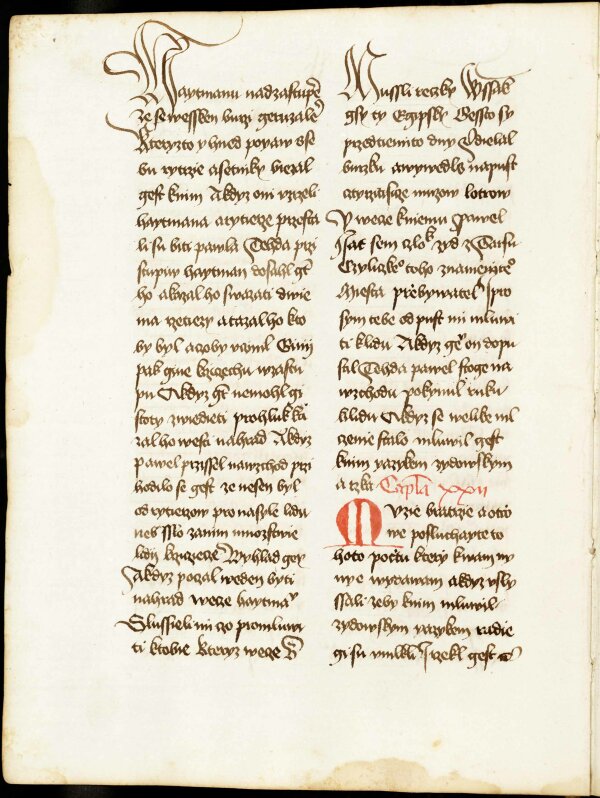 Haytmanu nad zastupē
ze se wessken burzi geruzalē
Kteryzto y hned poyaw sse
bu rytirze a setniky biezal
gest knim A kdyz oni vzrzeli
haytmana a rytierze przesta
li su biti pawla Tehda przi
stupiw haytman dosahl ge
ho a kazal ho swazati dwie
ma rzetiezy a tazal ho kto
by byl a czoby vcinil Gini
pak gine krziecchu w zastu
pu A kdyz gt nemohl gi
stoty zwiedieti pro hluk ka
zal ho westi na hrad A kdyz
pawel przissel na wzchod przi
hodilo se gest ze nesen byl
od rytierzow pro nasyle lidu
neb sslo zanim mnozstwie
lidu krziczecze Wyhlad gey
A kdyz poczal weden byti
na hrad wece haytmaⁿ
Slussieli mi czo promluwi
ti k tobie Kteryz wece
Mussli rzeczky Wssak
gsy ty Egipsky Gessto sy
przed tiemito dny Zdielal
burzku a wywedls na pust
cztyrzi tisicze muzow lotrow
Y wece kniemu Pawel
Jat sem czlok zyd z Tarsu
Czyliczkeᵒ toho znameniteᵒ
Miesta przebywatel Pro
sym tebe od pust mi mluwi
ti k lidu A kdyz geᵒ on dopu
stal Tehda pawel stoge na
wzchodu pokynul ruku
k lidu A kdyz se welike ml
czenie stalo mluwil gest
knim yazykem zydowskym
a rzka Capla xxii
Muzie bratrzie a otco
we posluchayte to
hoto pocztu ktery k wam ny
ny e wydawam a kdyz vsly
ssali zeby knim mluwil
zydowskym yazykem radie
gi su vmlkli J rzekl gest